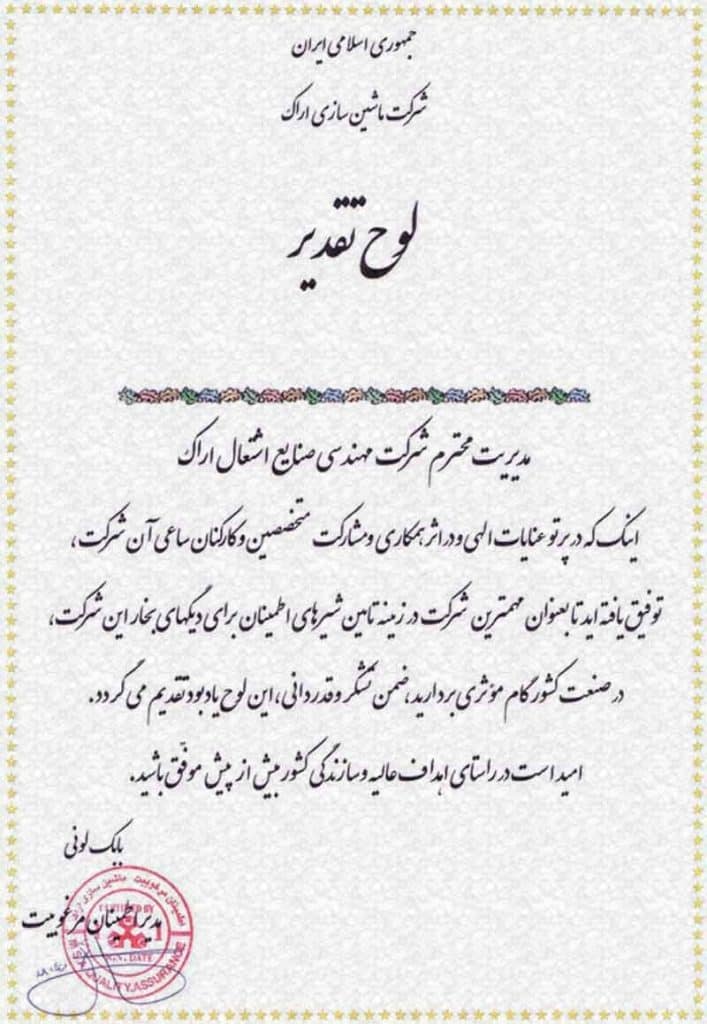 جمهوری اسلامی ایران
شرکت ماشین سازی اراک
لوح تقدیر
مدیریت محترم شرکت مهندسی صنایع اشتعال اراک
اینک که در پرتو عنایات الهی و در اثر همکاری و مشارکت متخصصین و کارکنان ساعی آن شرکت،
توفیق یافته اید تا بعنوان مهمترین شرکت در زمینه تامین شیرهای اطمینان برای دیگهای بخار این شرکت،
در صنعت کشور گام مؤثری بردارید، ضمن تشکر و قدردانی، این لوح یادبود تقدیم می گردد.
امید است در راستای اهداف عالیه و سازندگی کشور بیش از پیش موفّق باشید.
بابک لونی
مدیر اطمینان مرغوبیت
اطمینان مرغوبیت ماشین سازی اراک
CERTIFIED BY
DATE
QUALITY ASSURANCE